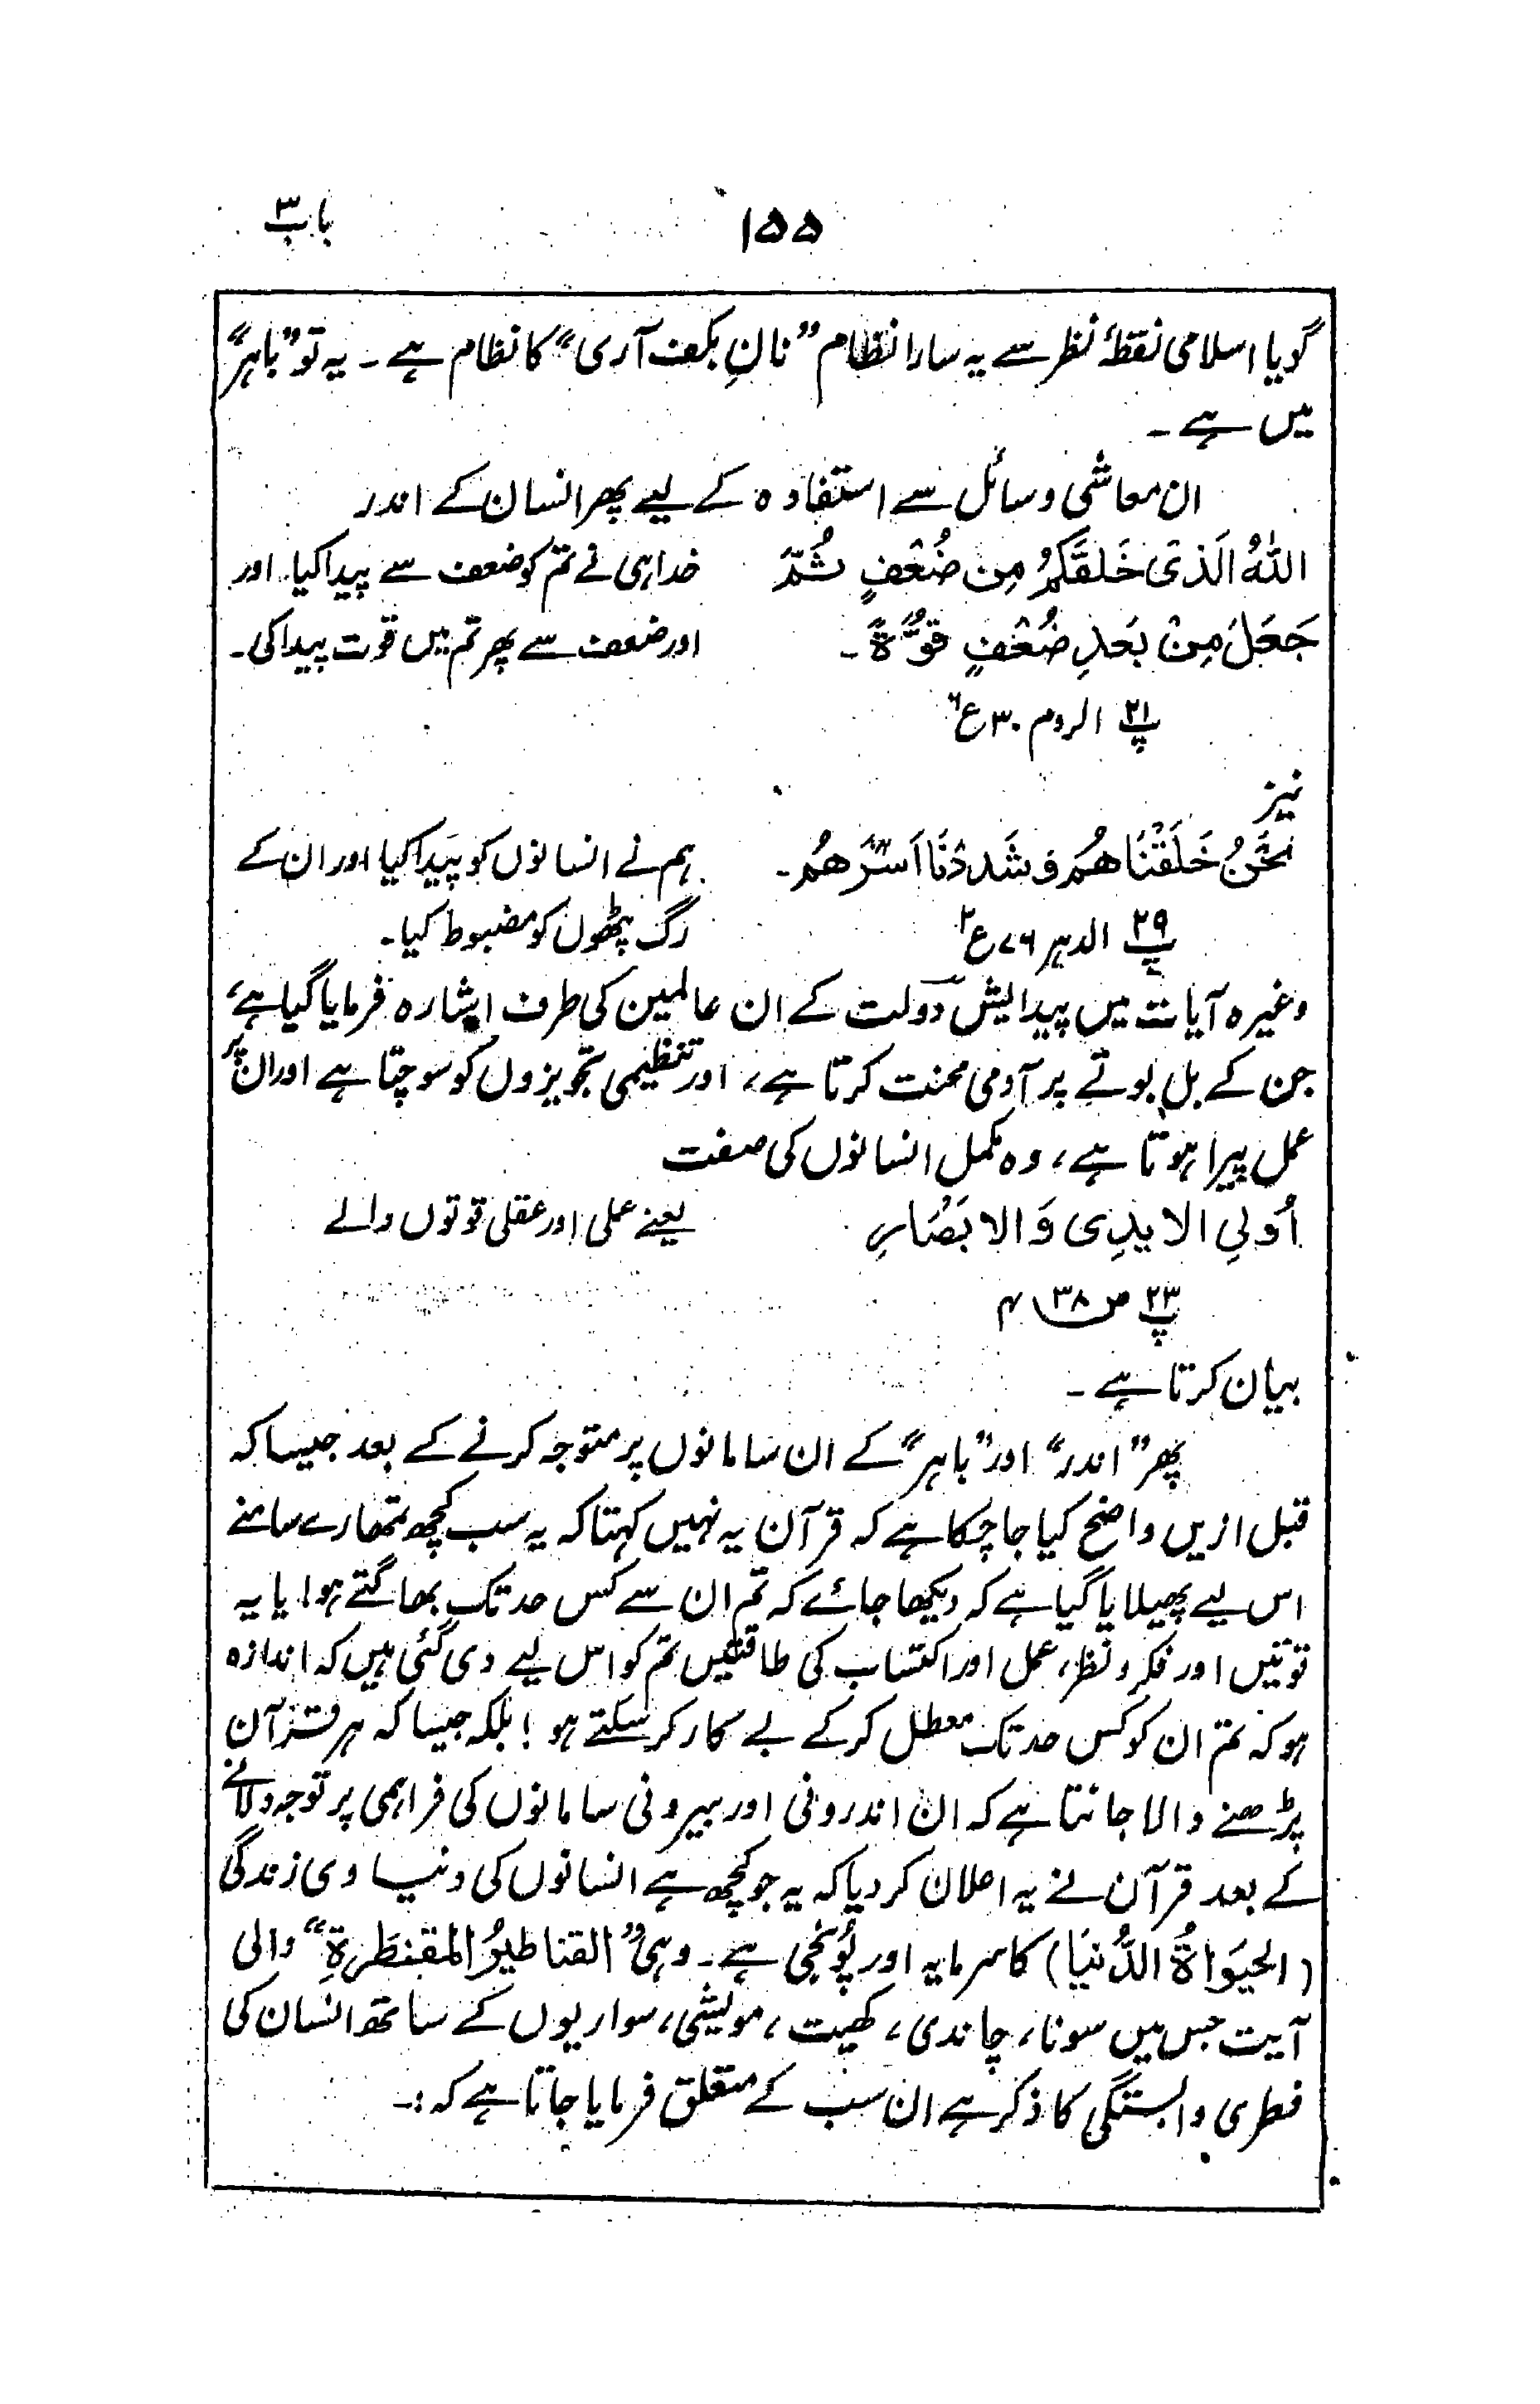 باب ۳
۱۵۵
گویا اسلامی نقطۂ نظر سے یہ سارا نظام ”نانِ بکف آری“ کا نظام ہے ۔ یہ تو ”باہر“
میں ہے ۔
ان معاشی وسائل سے استفادہ کے لیے پھر انسان کے اندر
اللّٰهُ الَّذِیْ خَلَقَکُمْ مِنْ ضُعْفٍ ثُمَّ خدا ہی نے تم کو ضعف سے پیدا کیا اور
جَعَلَ مِنْ بَعْدِ ضُعْفٍ قُوَّةً ۔ اور ضعف سے پھر تم میں قوت پیدا کی ۔
پ ۲۱ الروم ۳۰ ع ۶
نیز
نَحْنُ خَلَقْنَاهُمْ وَشَدَدْنَا اَسْرَهُمْ ۔ ہم نے انسانوں کو پیدا کیا اور ان کے
پ ۲۹ الدہر ۷۶ ع ۲ رگ پٹھوں کو مضبوط کیا ۔
وغیرہ آیات میں پیدایش دولت کے ان عالمین کی طرف اشارہ فرمایا گیا ہے،
جن کے بل بوتے پر آدمی محنت کرتا ہے، اور تنظیمی تجویزوں کو سوچتا ہے اور ان پر
عمل پیرا ہوتا ہے، وہ مکمل انسانوں کی صفت
اُولِی الایدِی وَالابصَارِ یعنے عملی اور عقلی قوتوں والے
پ ۲۳ ص ۳۸ ع ۴
بیان کرتا ہے ۔
پھر ”اندر“ اور ”باہر“ کے ان سامانوں پر متوجہ کرنے کے بعد جیسا کہ
قبل ازیں واضح کیا جا چکا ہے کہ قرآن یہ نہیں کہتا کہ یہ سب کچھ تمھارے سامنے
اس لیے پھیلایا گیا ہے کہ دیکھا جائے کہ تم ان سے کس حد تک بھاگتے ہو، یا یہ
قوتیں اور فکر و نظر، عمل اور اکتساب کی طاقتیں تم کو اس لیے دی گئی ہیں کہ اندازہ
ہو کہ تم ان کو کس حد تک معطل کرکے بے کار کر سکتے ہو ! بلکہ جیسا کہ ہر قرآن
پڑھنے والا جانتا ہے کہ ان اندرونی اور بیرونی سامانوں کی فراہمی پر توجہ دلانے
کے بعد قرآن نے یہ اعلان کر دیا کہ یہ جو کچھ ہے انسانوں کی دنیاوی زندگی
(الحَیَوٰاةُ الدُّنیَا) کا سرمایہ اور پُونجی ہے ۔ وہی ”القناطیرُ المقنطَرةِ“ والی
آیت جس میں سونا، چاندی، کھیت، مویشی، سواریوں کے ساتھ انسان کی
فطری وابستگی کا ذکر ہے ان سب کے متعلق فرمایا جاتا ہے کہ :۔